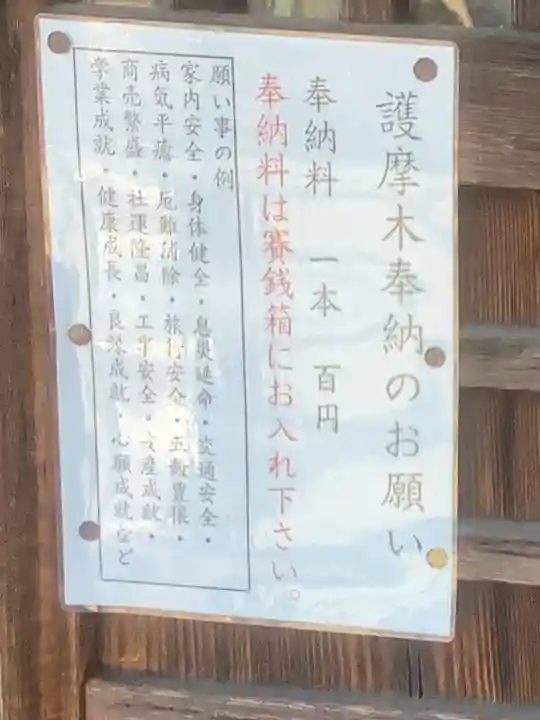 護摩木奉納のお願い
奉納料 一本 百円
奉納料は賽銭箱にお入れ下さい。
願い事の例
家内安全・身体健全・息災延命・交通安全・
病気平癒・厄難消除・旅行安全・五穀豊穣・
商売繁盛・社運隆昌・工事安全・安産成就・
学業成就・健康成長・良縁成就・心願成就など